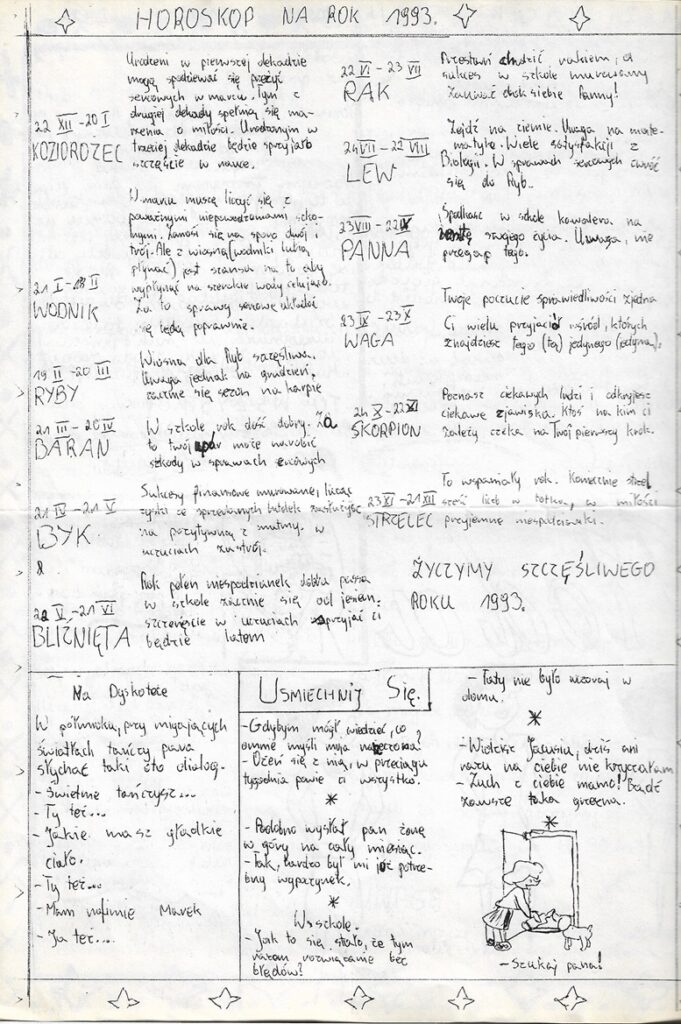 HOROSKOP NA ROK 1993.
22 XII - 20 I
KOZIOROŻEC
Urodzeni w pierwszej dekadzie
mogą spodziewać się przeżyć
sercowych w marcu. Tym z
drugiej dekady spełnią się ma-
rzenia o miłości. Urodzonym w
trzeciej dekadzie będzie sprzyjało
szczęście w nauce.
21 I - 18 II
WODNIK
W marcu muszą liczyć się z
poważnymi niepowodzeniami szkol-
nymi. Zanosi się na sporo dwój i
trój. Ale z wiosną (wodniki lubią
pływać) jest szansa na to aby
wypłynąć na szerokie wody
Za to sprawy sercowe układać
się będą poprawnie.
19 II - 20 III
RYBY
Wiosna dla Ryb szczęśliwa.
Uwaga jednak na grudzień,
zacznie się sezon na karpie
21 III - 20 IV
BARAN
W szkole rok dość dobry. Za
to twój upór może narobić
szkody w sprawach sercowych
21 IV - 21 V
BYK
Sukcesy finansowe murowane, licząc
zyski ze sprzedanych butelek zasłużysz
na pozytywną z matmy. W
uczuciach zastój.
22 V - 21 VI
BLIŹNIĘTA
Rok pełen niespodzianek dobra passa
w szkole zacznie się od jesieni.
szczęście w uczuciach sprzyjać ci
będzie latem
22 VI - 23 VII
RAK
Przestań chodzić rakiem, a
sukces w szkole murowany
Zauważ obok siebie Panny!
24 VII - 22 VIII
LEW
Zejdź na ziemię. Uwaga na mate-
matykę. Wiele satysfakcji z
Biologii. W sprawach sercowych zwróć
się do Ryb.
23 VIII - 22 IX
PANNA
Spotkasz w szkole kawalera na
resztę swojego życia. Uwaga, nie
przegap tego.
23 IX - 23 X
WAGA
Twoje poczucie sprawiedliwości zjedna
Ci wielu przyjaciół wśród, których
znajdziesz tego (tą) jedynego (jedyną).
24 X - 22 XI
SKORPION
Poznasz ciekawych ludzi i odkryjesz
ciekawe zjawiska. Ktoś na kim ci
zależy czeka na Twój pierwszy krok.
23 XI - 21 XII
STRZELEC
To wspaniały rok. Koniecznie strzel
sześć liczb w totka, a w miłości
przyjemne niespodzianki.
ŻYCZYMY SZCZĘŚLIWEGO
ROKU 1993.
Na Dyskotece
W półmroku, przy migających
światłach tańczy para
słychać taki oto dialog:
- Świetnie tańczysz...
- Ty też...
- Jakie masz gładkie
ciało.
- Ty też...
- Mam na imię Marek
- Ja też...
UŚMIECHNIJ SIĘ.
- Gdybym mógł wiedzieć, co
o mnie myśli moja narzeczona?
- Ożeń się z nią, w przeciągu
tygodnia powie ci wszystko.
*
- Podobno wysłał pan żonę
w góry na cały miesiąc.
- Tak, bardzo był mi już potrze-
bny wypoczynek.
*
W szkole.
- Jak to się stało, że tym
razem rozwiązanie bez
błędów?
- Taty nie było wczoraj w
domu.
*
- Widzisz Jasusiu, dziś ani
razu na ciebie nie krzyczałam
- Zuch z ciebie mamo! Bądź
zawsze taka grzeczna.
*
- Szukaj pana!